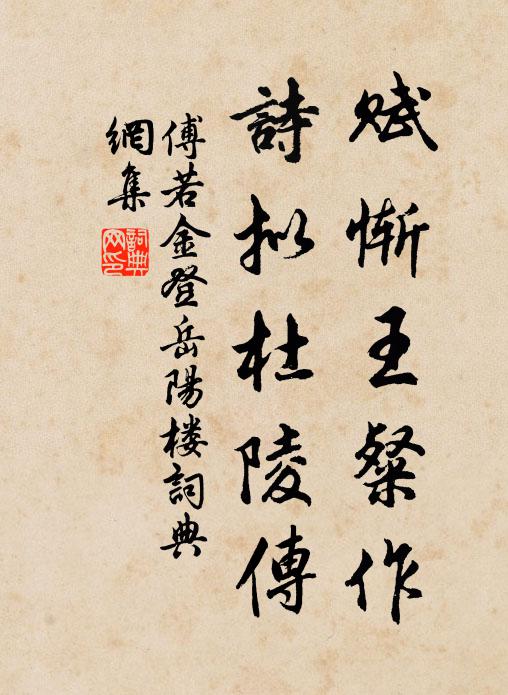 賦慚王粲作
詩擬杜陵傳
傅若金登岳陽楼詞典
網集
詞典
网印